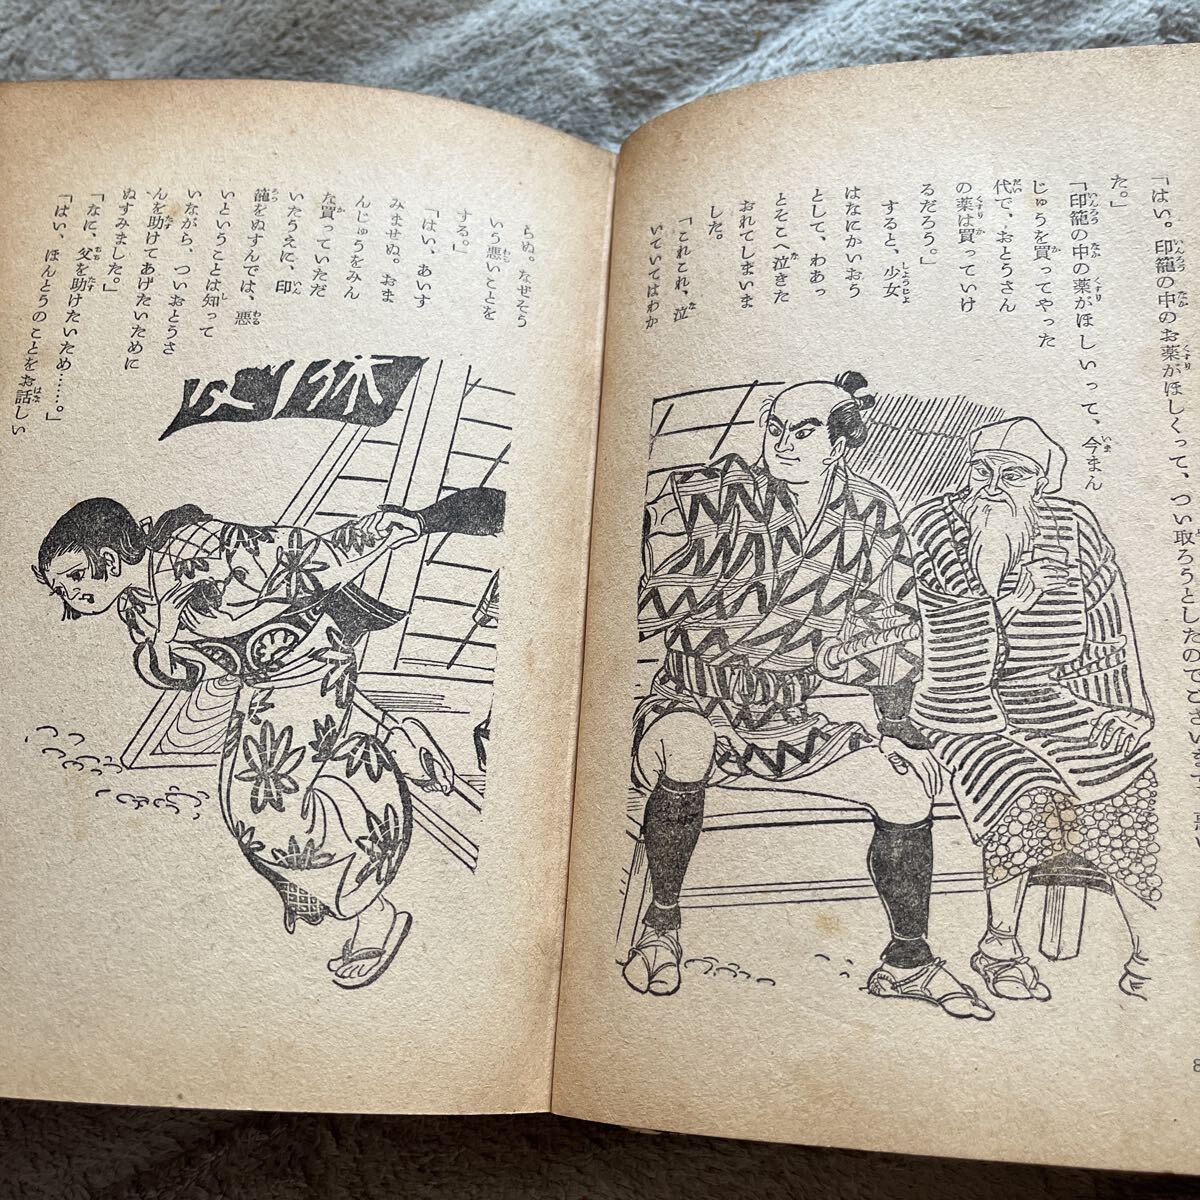 「はい。印籠の中のお薬がほしくって、つい取ろうとしたのでございま
た。」
「印籠の中の薬がほしいって、今まん
じゅうを買ってやった
代で、おとうさん
の薬は買っていけ
るだろう。」
すると、少女
はなにかいおう
として、わあっ
とそこへ泣きた
おれてしまいま
した。
「これこれ、泣
いていてはわか
らぬ。なぜそう
いう悪いことを
する。」
「はい、あいす
みませぬ。おま
んじゅうをみん
な買っていただ
いたうえに、印
籠をぬすんでは、悪
いということは知って
いながら、ついおとうさ
んを助けてあげたいために
ぬすみました。」
「なに、父を助けたいため……。」
「はい、ほんとうのことをお話しい